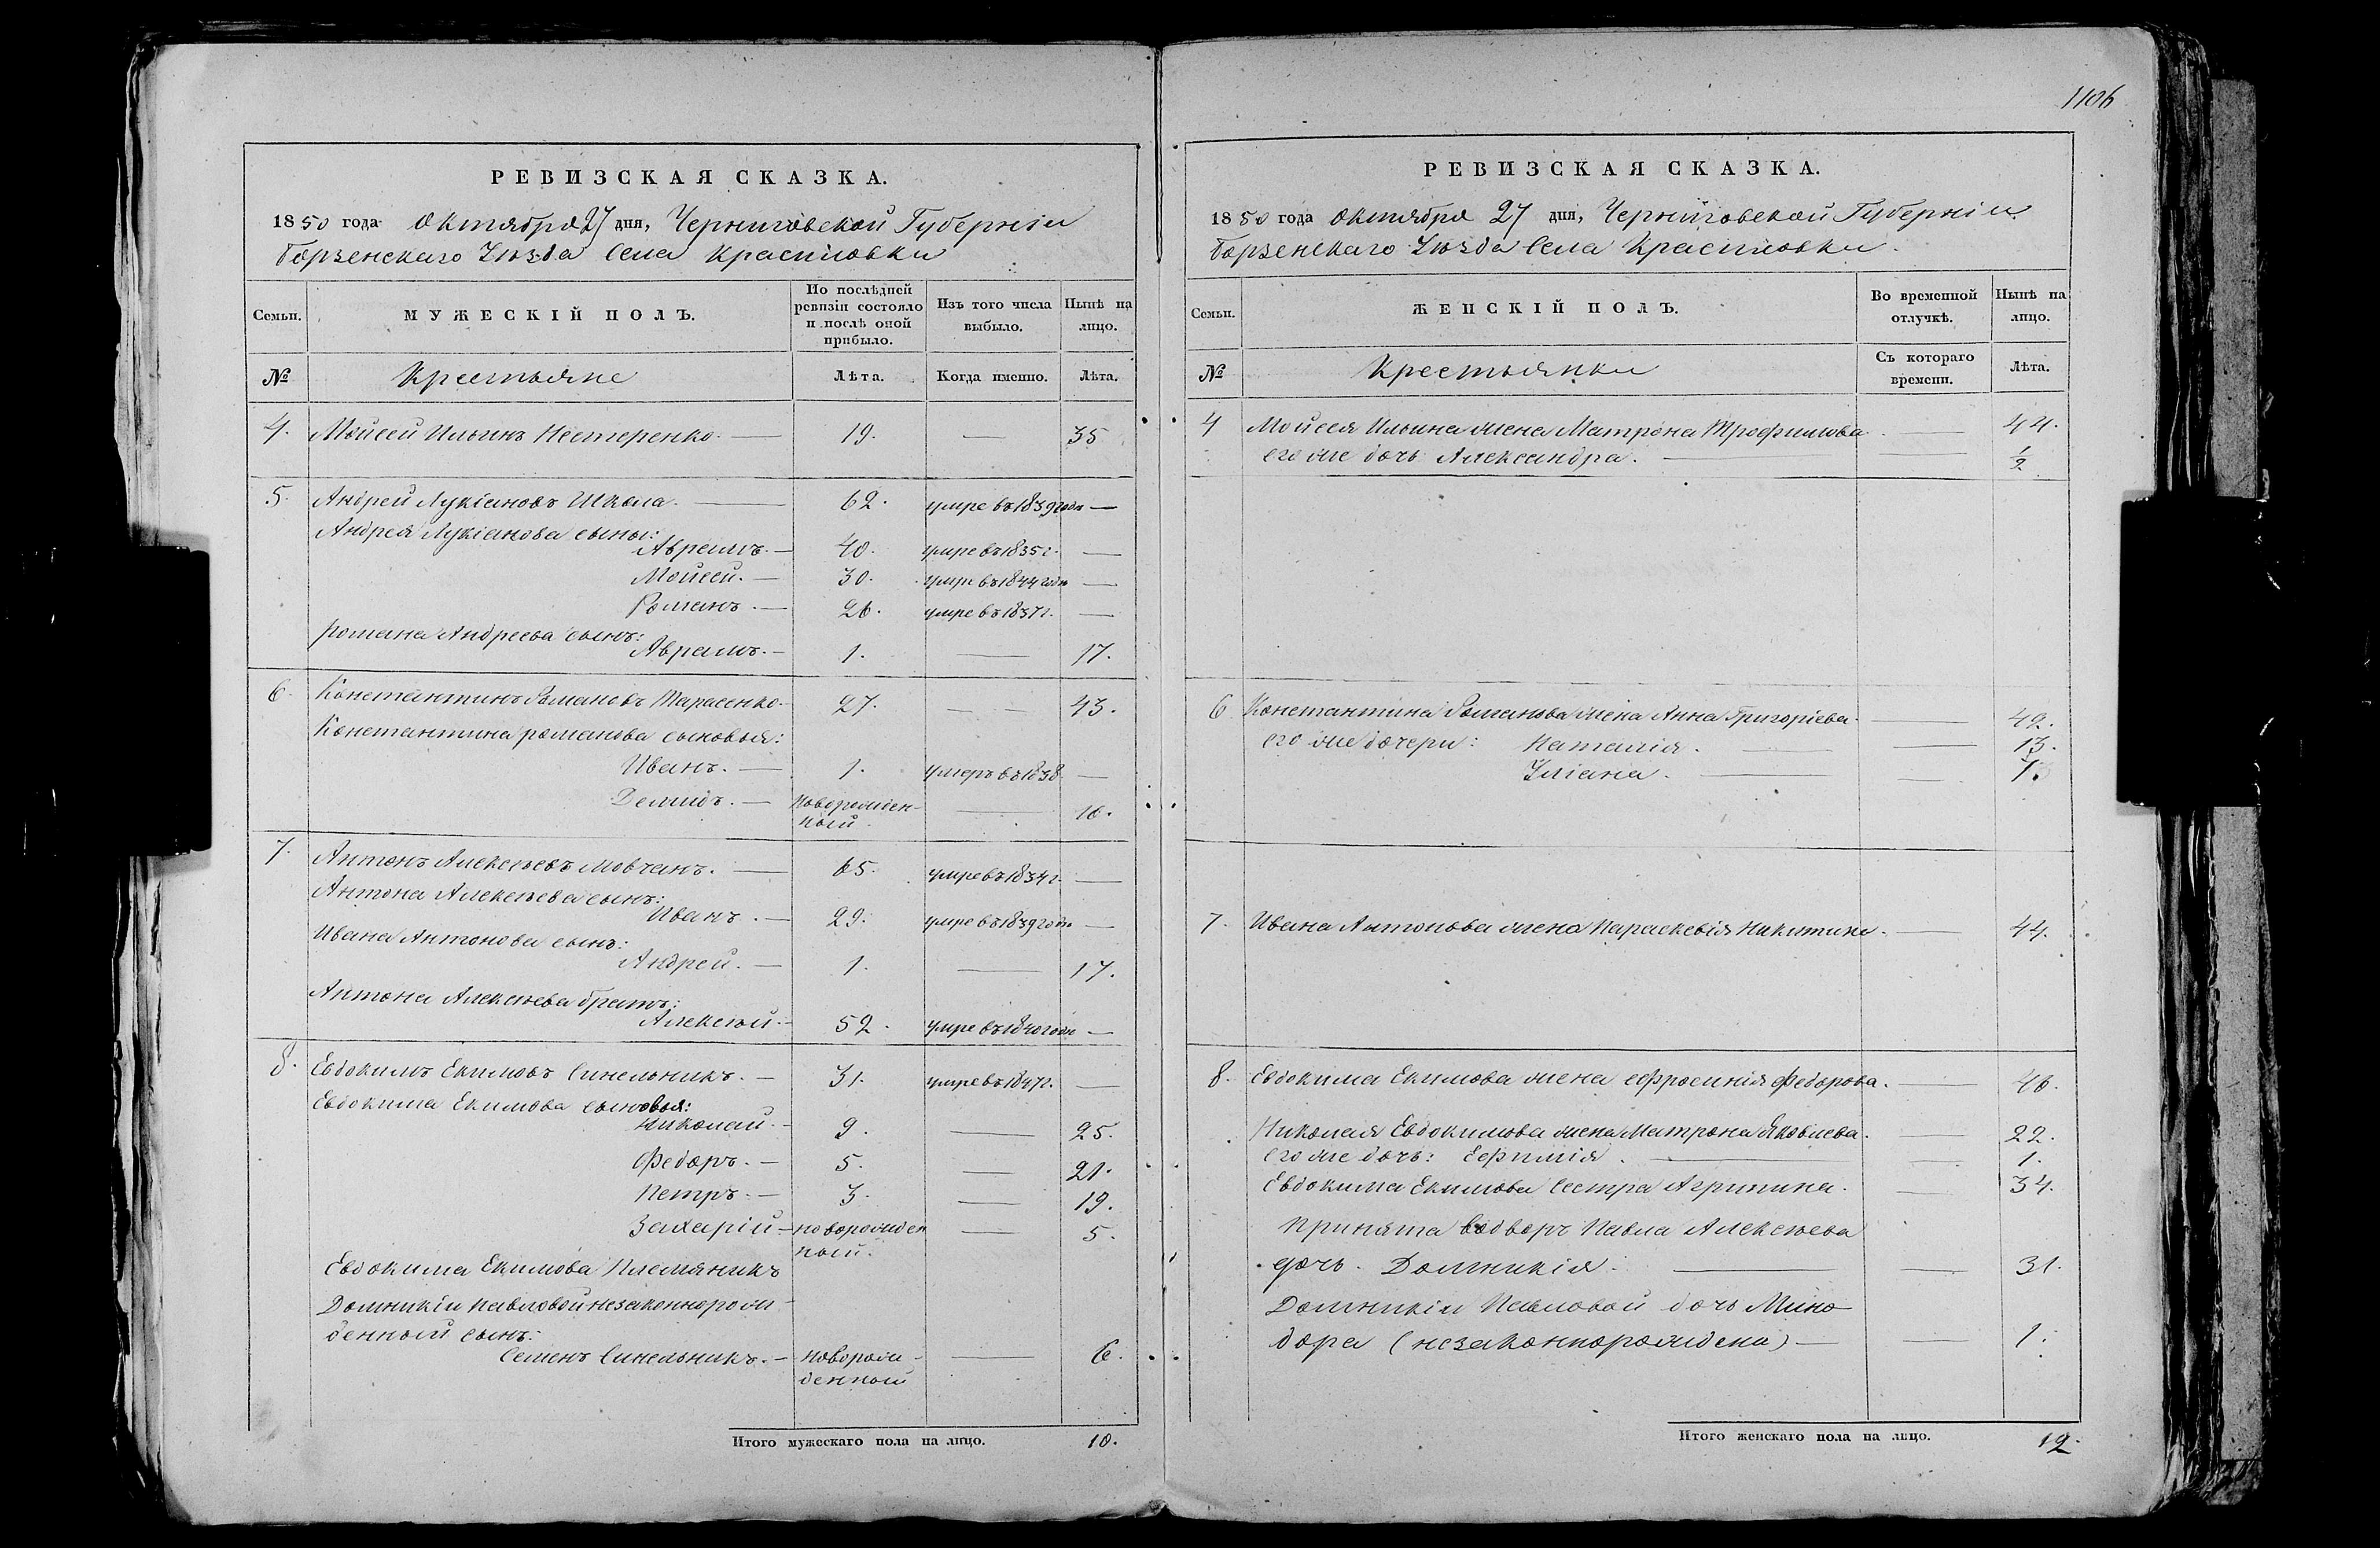 1106
РЕВИЗСКАЯ СКАЗКА.
1850 года Октября 27 дня, Черниговской Губерніи
Борзенскаго Уѣзда Села Красиловки
Семьи.
МУЖЕСКІЙ ПОЛЪ.
По послѣдней ревизіи состояло и послѣ оной прибыло.
Изъ того числа выбыло.
Нынѣ на лицо.
№ Крестьяне Лѣта. Когда именно. Лѣта.
4. Мойсей Ильинъ Нестеренко. — 19. — 35
5. Андрей Лукіановъ Школа. — 62. умре въ 1839 годѣ —
Андрея Лукіанова сыны:
Аврамъ. — 40. умре въ 1835 г. —
Мойсей. — 30. умре въ 1844 годѣ —
Романъ. — 26. умре въ 1837 г. —
Романа Андреева сынъ:
Аврамъ. — 1. — 17.
6. Константинъ Романовъ Тарасенко. 27. — — 43.
Константина Романова сыновья:
Иванъ. — 1. умеръ въ 1838 —
Демидъ. — новорожден-
ный — 10.
7. Антонъ Алексѣевъ Мовчанъ. — 65. умре въ 1834 г. —
Антона Алексѣева сынъ:
Иванъ. — 29. умре въ 1839 годѣ —
Ивана Антонова сынъ:
Андрей. — 1. — 17.
Антона Алексѣева братъ:
Алексѣй. — 52. умре въ 1840 годѣ —
8. Евдокимъ Екимовъ Синельникъ. — 31. умре въ 1847 г. —
Евдокима Екимова сыновья:
Николай. — 9. — 25.
Федоръ. — 5. — 21.
Петръ. — 3. — 19.
Захарій — новорожден
ный. — 5.
Евдокима Екимова Племяникъ
Домникіи Павловой незаконнорож-
денный сынъ:
Семенъ Синельникъ. — новорож-
денный — 6.
Итого мужескаго пола на лицо. 10.
РЕВИЗСКАЯ СКАЗКА.
1850 года Октября 27 дня, Черниговской Губерніи
Борзенскаго Уѣзда Села Красиловки.
Семьи.
ЖЕНСКІЙ ПОЛЪ.
Во временной отлучкѣ.
Нынѣ на лицо.
№ Крестьянки Съ котораго времени. Лѣта.
4 Мойсея Ильина жена Матрона Трофимова — 44.
его же дочь Александра. — — 1/2
6 Константина Романова жена Анна Григоріева. — 42.
его же дочери: Наталія. — — 13.
Уліана. — — 7.
7. Ивана Антонова жена Параскевія Никитина. — 44.
8. Евдокима Екимова жена Ефросинія Федорова. — 46.
Николая Евдокимова жена Матрона Яковлева. — 22.
его же дочь: Ефимія. — — 1.
Евдокима Екимова Сестра Агрипина. — 34.
Принята водворъ Павла Алексѣева
дочь. Домникія. — — 31.
Домникіи Павловой дочь Мино-
дора (незаконнорождена) — — 1.
Итого женскаго пола на лицо. 12.